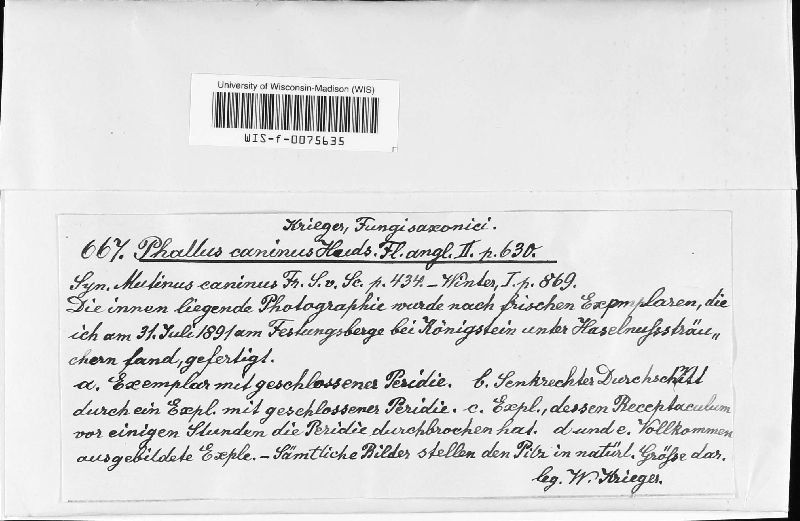 University of Wisconsin-Madison (WIS)
WIS-f-0075635
Krieger, Fungi saxonici.
667. Phallus caninus Huds. Fl. angl. II. p. 630.
Syn. Mutinus caninus Fr. S. v. Sc. p. 434 – Winter, I. p. 869.
Die innen liegende Photographie wurde nach frischen Exemplaren, die
ich am 31. Juli 1891 am Festungsberge bei Königstein unter Haselnußsträu„
chern fand, gefertigt.
a. Exemplar mit geschlossener Peridie. b. Senkrechter Durchschnitt
durch ein Expl. mit geschlossener Peridie. c. Expl., dessen Receptaculum
vor einigen Stunden die Peridie durchbrochen hat. d und e. Vollkommen
ausgebildete Exple. – Sämtliche Bilder stellen den Pilz in natürl. Größe dar.
leg. W. Krieger.